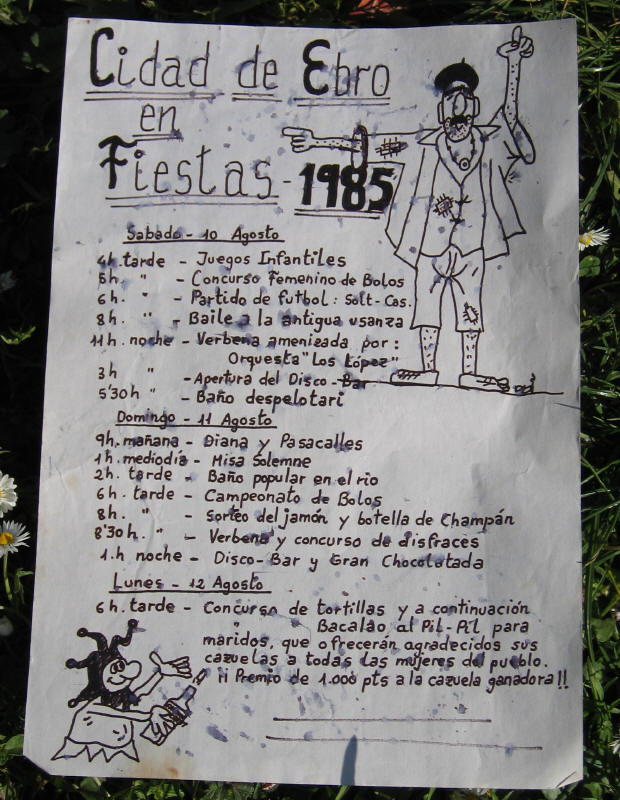 Cidad de Ebro
en
Fiestas - 1985
Sabado - 10 Agosto
4h. tarde - Juegos Infantiles
5h. " - Concurso Femenino de Bolos
6h. " - Partido de futbol: Solt-Cas.
8h. " - Baile a la antigua usanza
11h. noche - Verbena amenizada por:
Orquesta "Los López"
3h " - Apertura del Disco-Bar
5'30h " - Baño despelotari
Domingo - 11 Agosto
9h. mañana - Diana y Pasacalles
1h. mediodía - Misa Solemne
2h. tarde - Baño popular en el rio
6h. tarde - Campeonato de Bolos
8h. " - Sorteo del jamón y botella de Champán
8'30h. " - Verbena y concurso de disfraces
1.h noche - Disco-Bar y Gran Chocolatada
Lunes - 12 Agosto
6h. tarde - Concurso de tortillas y a continuación
" Bacalao al Pil-Pil para
maridos, que ofrecerán agradecidos sus
cazuelas a todas las mujeres del pueblo.
¡¡ Premio de 1.000 pts a la cazuela ganadora!!